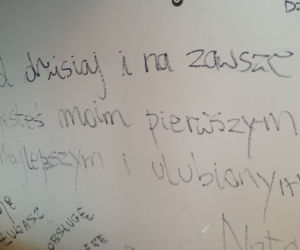 dzisiaj i na zawsze
jesteś moim pierwszym
najlepszym i ulubionym
ŁUKASZ
OBSŁUGĘ